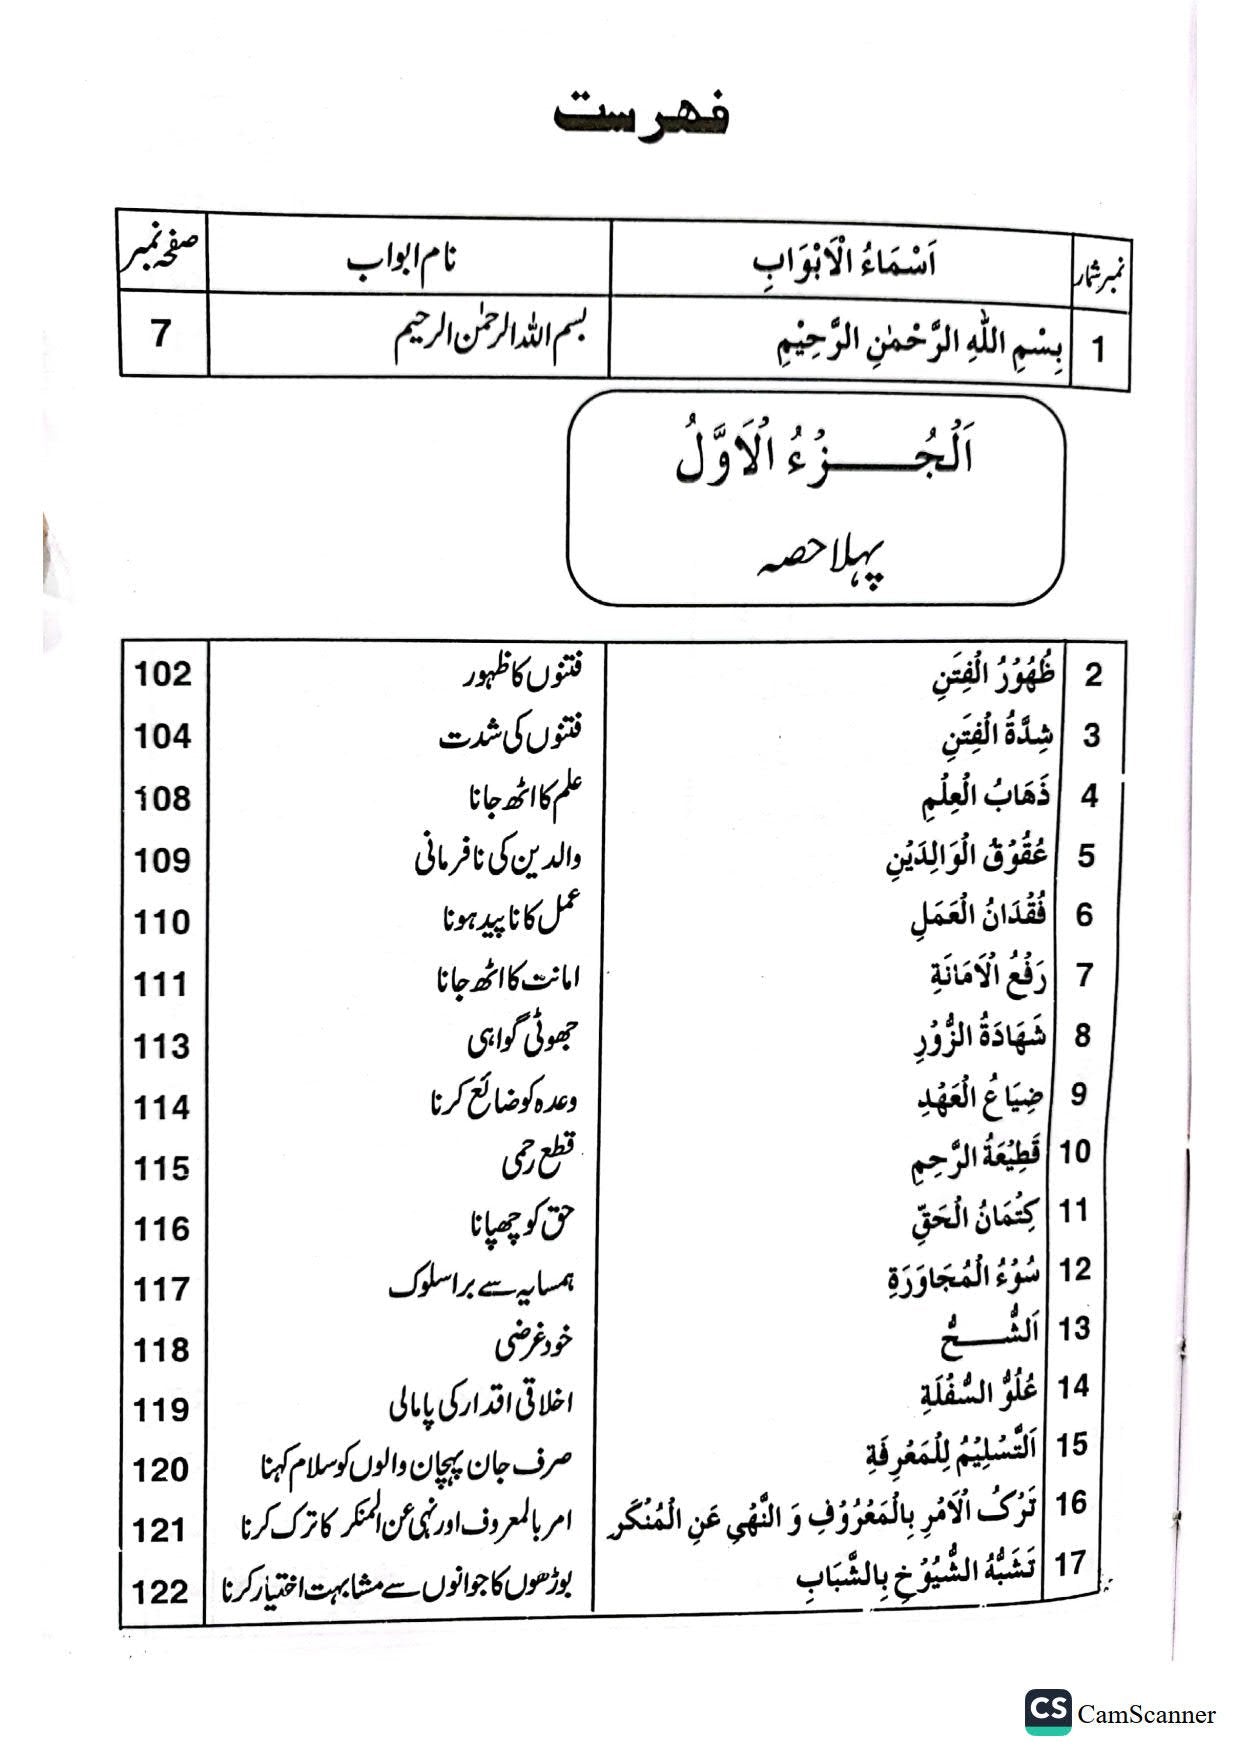 فہرست
نمبر شمار اَسْمَاءُ الْاَبْوَابِ نام ابواب صفحہ نمبر
1 بِسْمِ اللهِ الرَّحْمٰنِ الرَّحِيْمِ بسم اللہ الرحمٰن الرحیم 7
اَلْجُـــــزْءُ الْاَوَّلُ
پہلا حصہ
2 ظُهُوْرُ الْفِتَنِ فتنوں کا ظہور 102
3 شِدَّةُ الْفِتَنِ فتنوں کی شدت 104
4 ذَهَابُ الْعِلْمِ علم کا اٹھ جانا 108
5 عُقُوْقُ الْوَالِدَيْنِ والدین کی نافرمانی 109
6 فُقْدَانُ الْعَمَلِ عمل کا ناپید ہونا 110
7 رَفْعُ الْاَمَانَةِ امانت کا اٹھ جانا 111
8 شَهَادَةُ الزُّوْرِ جھوٹی گواہی 113
9 ضِيَاعُ الْعَهْدِ وعدہ کو ضائع کرنا 114
10 قَطِيْعَةُ الرَّحِمِ قطع رحمی 115
11 كِتْمَانُ الْحَقِّ حق کو چھپانا 116
12 سُوْءُ الْمُجَاوَرَةِ ہمسایہ سے برا سلوک 117
13 اَلشُّـــــحُّ خود غرضی 118
14 عُلُوُّ السُّفْلَةِ اخلاقی اقدار کی پامالی 119
15 اَلتَّسْلِيْمُ لِلْمَعْرِفَةِ صرف جان پہچان والوں کو سلام کہنا 120
16 تَرْكُ الْاَمْرِ بِالْمَعْرُوْفِ وَ النَّهْىِ عَنِ الْمُنْكَرِ امر بالمعروف اور نہی عن المنکر کا ترک کرنا 121
17 تَشَبُّهُ الشُّيُوْخِ بِالشَّبَابِ بوڑھوں کا جوانوں سے مشابہت اختیار کرنا 122
CS CamScanner